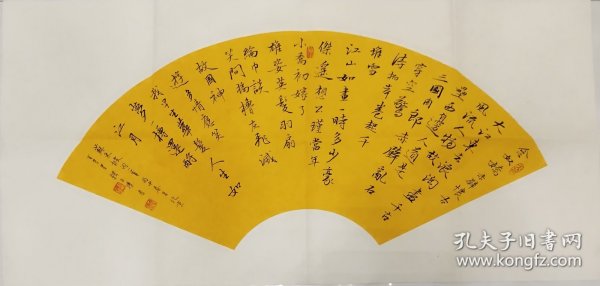 念奴嬌 赤壁懷古
大江東去浪淘盡千古
風流人物故
壘西邊人道是
三國周郎赤壁亂石
穿空驚
濤拍岸卷起千
堆雪
江山如畫一時多少豪
傑遙想公瑾當年
小喬初嫁了
雄姿英發羽扇
綸巾談
笑間檣櫓灰飛滅
故國神
遊多情應笑
我早生華髮人生如
夢一樽還酹
江月
孔夫子旧书网
www.kongfz.com